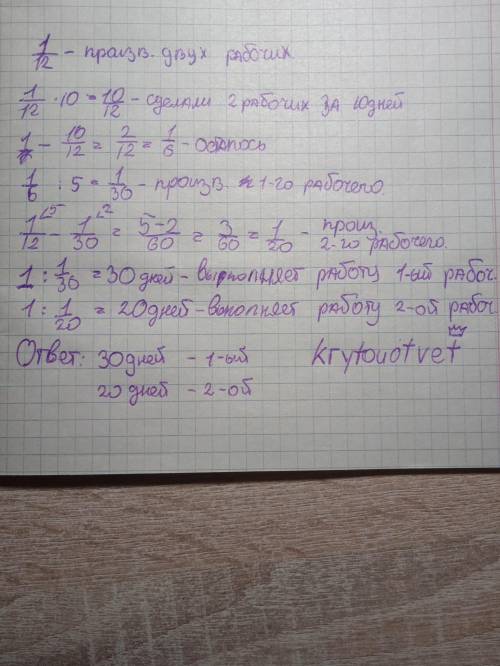 1/12 - произв. двух рабочих
1/12 · 10 = 10/12 - сделали 2 рабочих за 10 дней
1 - 10/12 = 2/12 = 1/6 - осталось
1/6 : 5 = 1/30 - произв. 1-го рабочего.
1/12 - 1/30 = 5-2/60 = 3/60 = 1/20 - произ. 2-го рабочего.
1 : 1/30 = 30 дней - выполняет работу 1-ый рабоч.
1 : 1/20 = 20 дней - выполняет работу 2-ой рабоч.
Ответ: 30 дней - 1-ый krytouotvet
20 дней - 2-ой